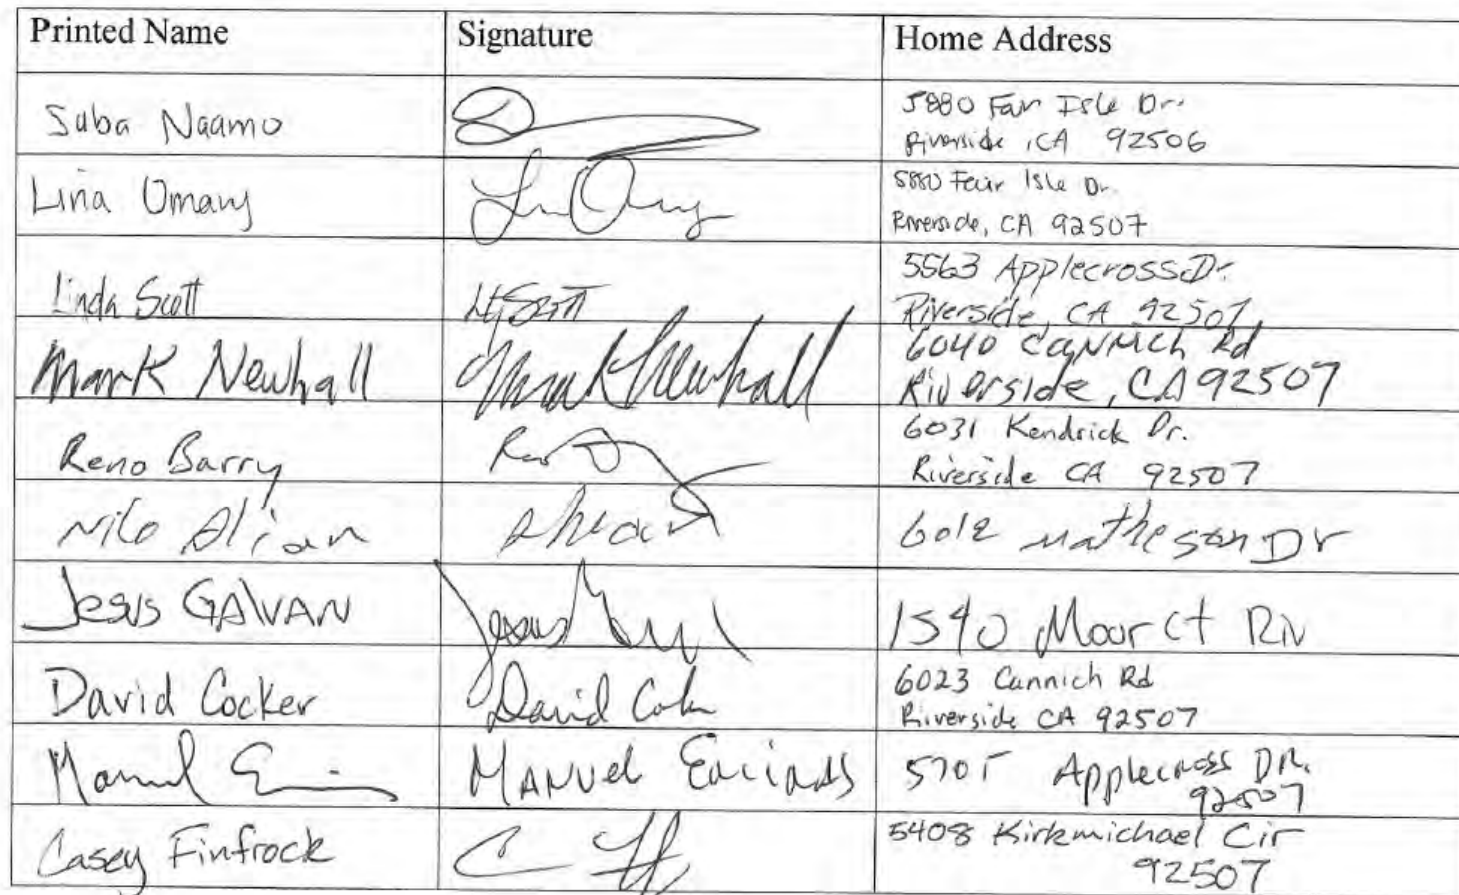 Printed Name Signature Home Address
Saba Naamo 5880 Fair Isle Dr.
Riverside, CA 92506
Lina Omary 5880 Fair Isle Dr.
Riverside, CA 92507
Linda Scott 5563 Applecross Dr.
Riverside, CA 92507
Mark Newhall Mark Newhall 6040 Cannich Rd
Riverside, CA 92507
Reno Barry 6031 Kendrick Dr.
Riverside CA 92507
Nilo 6012 Matheson Dr
Jesus GALVAN Jesus 1540 Moor ct Riv
David Cocker David 6023 Cannich Rd
Riverside CA 92507
Manuel MANUEL 5705 Applecross DR.
92507
Casey Finfrock 5408 Kirkmichael Cir
92507